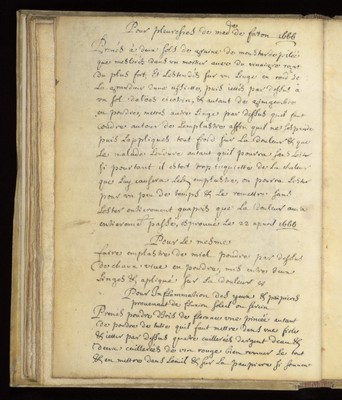 Pour pleuresies de mad de faton. 1666
Prenés à deux sols de graine de moustarde pilée
que mettrés dans un mortier avec du vinaigre
du plus fort, & l'estendés sur un linge en rond de
la grandeur dune assiette, puis mettés par dessus
un sol d'aloes & autant de gingembre
en poudre, mettés autre linge par dessus quil faut
coudre autour de l'emplastre affin quil ne
puis l'appliqués tout froid sur la douleur & que
le malade l'endure autant quil pourra sans l'oster
si pourtant il estoit trop de la chaleur
que luy causera led. emplastre, on pourra l'oster
pour un peu de temps & le remettre sans
l'oster entierement jusques que la douleur aura
entierement passée, esprouvé le 22 apvril 1666
Pour le mesme
faites emplastre de miel, poudre par dessus
de chaux vive en poudre, mis entre deux
linges & apliqué sur la douleur
Pour Inflammation des yeux & paupieres
provenant de fluxion soleil ou serein
Prenés poudre d'Iris de florence une pincée autant
de poudre de tuttie quil faut mettre dans une fiole
& jetter par dessus quatre cuillerées d'argent d'eau &
deux cuillerées de vin rouge bien remuer le tout
& en mettre dans l'oeuil & sur la paupiere si